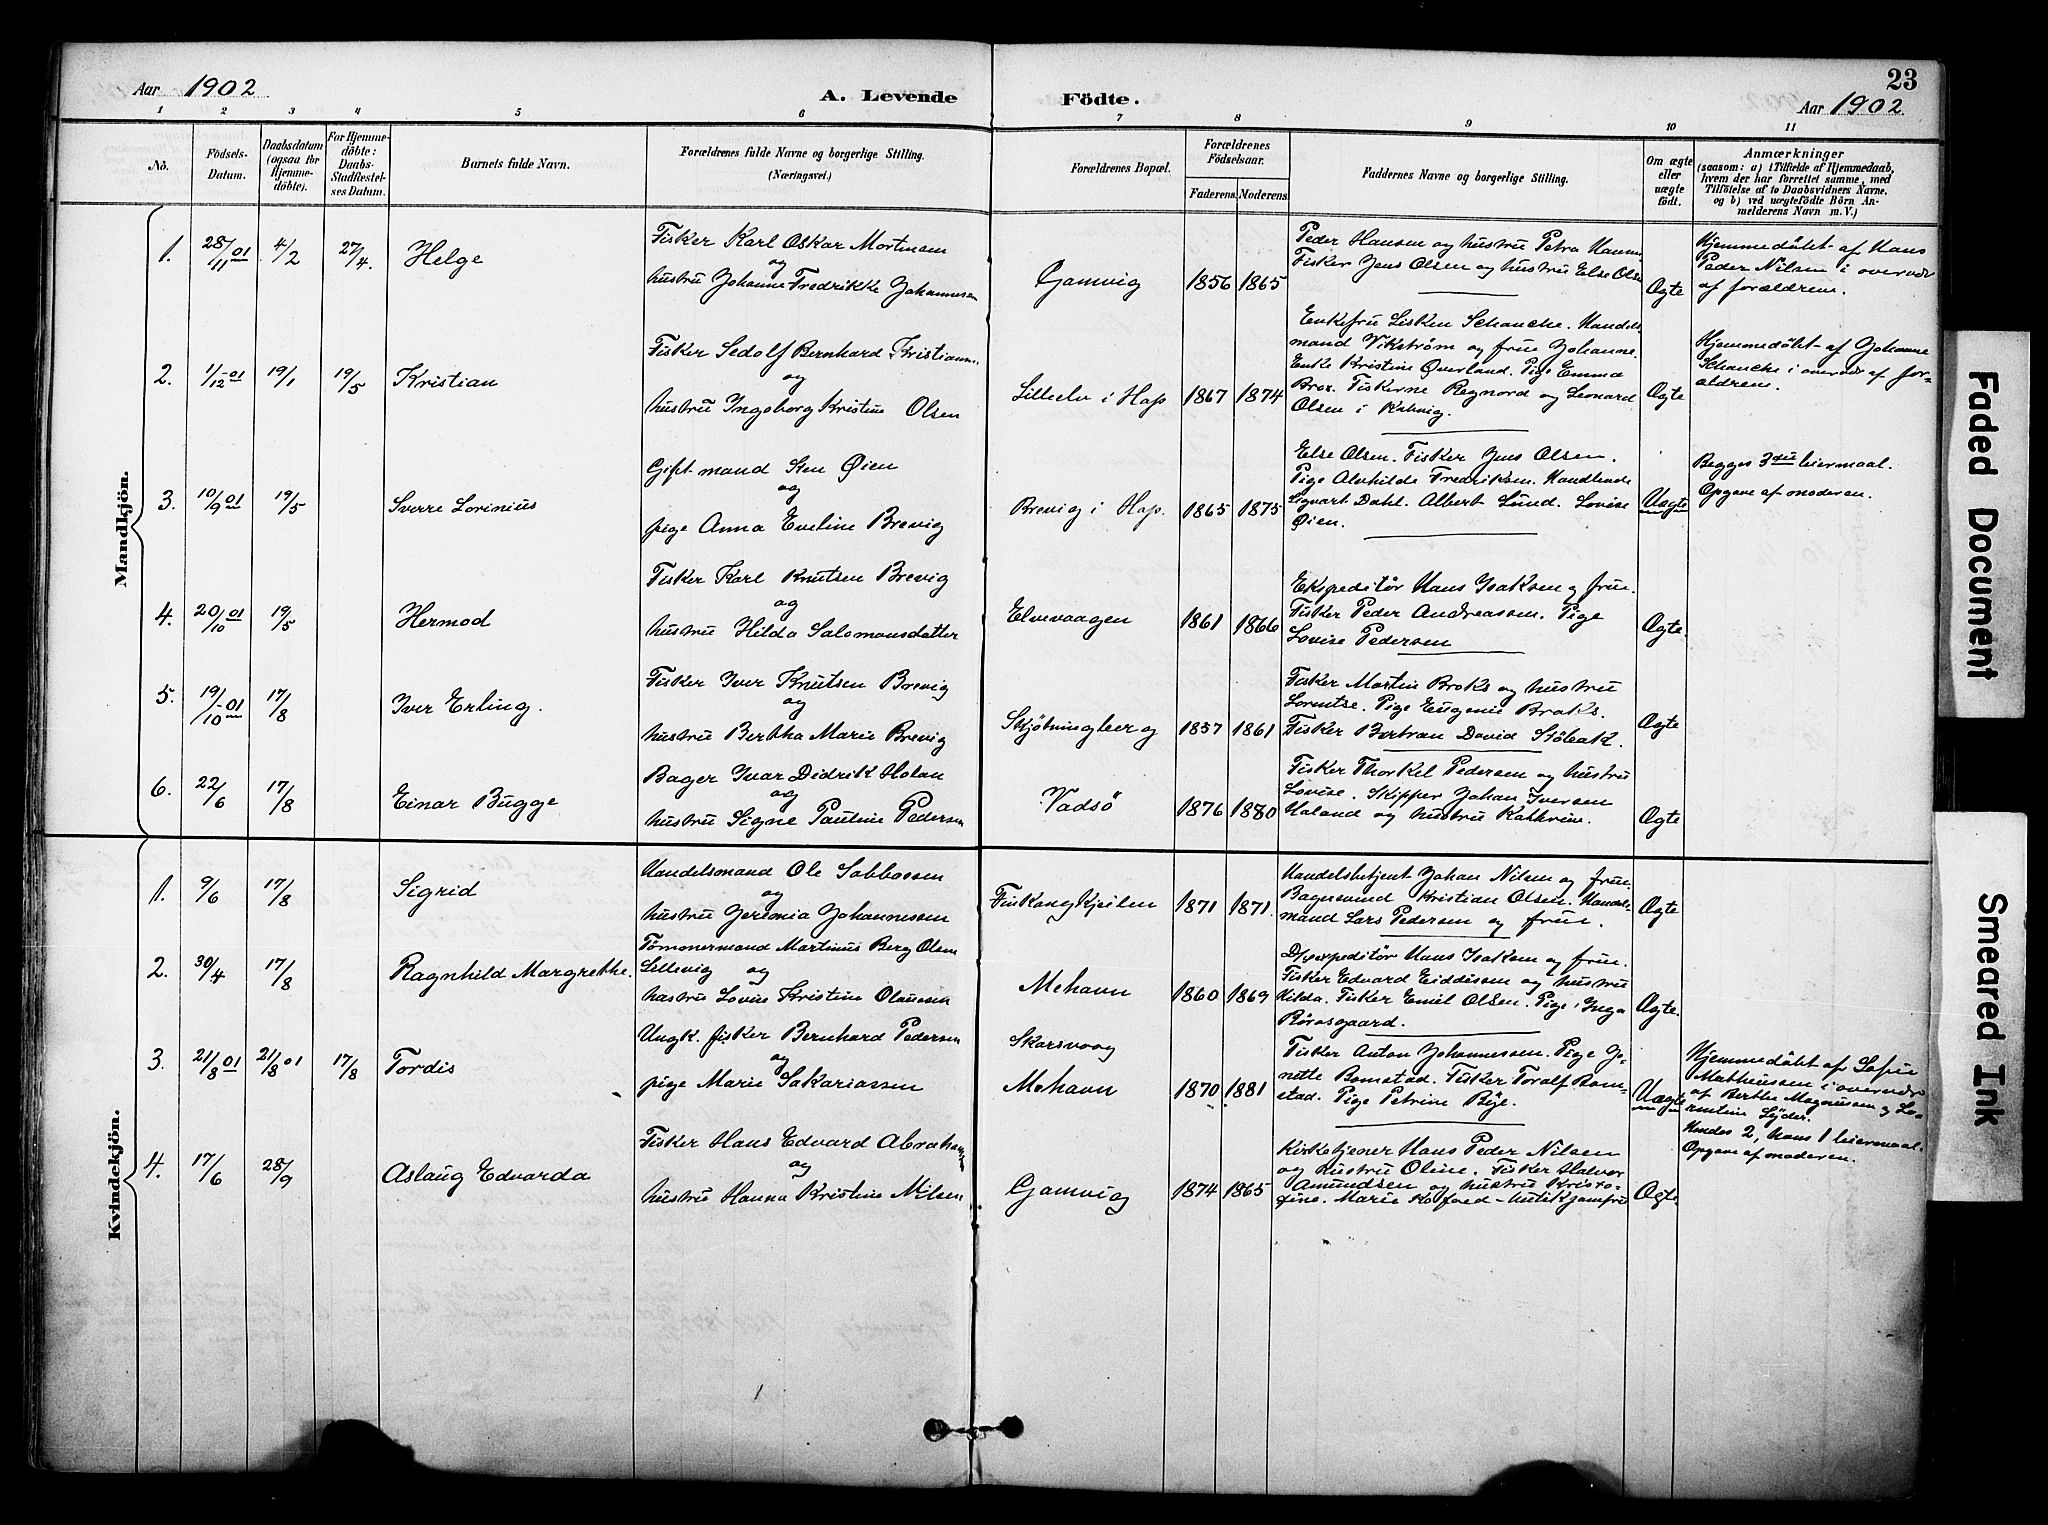 Aar 1902
A. Levende Födte.
23
Aar 1902
1 2 3 4 5 6 7 8 9 10 11
No.
Födsels-Datum.
Daabsdatum (ogsaa för Hjemmedöbte).
For Hjemmedöbte: Daabs-Stadfæstelses Datum.
Barnets fulde Navn.
Forældrenes fulde Navne og borgerlige Stilling.
(Næringsvei.)
Forældrenes Bopæl.
Forældrenes Födselsaar.
Faderens. Moderens.
Faddernes Navne og borgerlige Stilling.
Om ægte eller uægte født.
Anmærkninger
(saasom: a) i Tilfælde af Hjemmedaab,
hvem der har forrettet samme, med
Tilföielse af to Daabsvidners Navne,
og b) ved uægtefödte Börn Anmelderens Navn m. V.)
Mandkjön.
1. 28/11 01 4/2 27/4. Helge
Fisker Karl Oskar Mortensen
og
hustru Johanne Fredrikke Johannesen
Gamvig 1856 1865
Peder Hansen og hustru Petra Hansen
Fisker Jens Olsen og hustru Else Olsen
Ægte
Hjemmedöbt af Hans
Peder Nilsen i overvær
af forældrene.
2. 1/12-01 19/1 19/5 Kristian
Fisker Sedolf Bernhard Kristiansen
og
hustru Ingeborg Kristine Olsen
Lilleelv i Hop 1867 1874
Enkefru Lisken Schanche. Handels-
mand Vikstrøm og frue Johanne.
Enke Kristine Øverland. Pige Emma
Brox. Fiskerne Regnord og Leonard
Olsen i Kalvig.
Ægte
Hjemmedöbt af Johanne
Schanche i overvær af for-
ældrene.
3. 10/9 01 19/5 Sverre Lorinius
Gift mand Sten Øien
og
pige Anna Eveline Brevig
Brevig i Hop. 1865 1875
Else Olsen. Fisker Jens Olsen.
Pige Alvhilde Fredriksen. Handlende
Sigvart Dahl. Albert Lund. Lovise
Øien.
Uægte
Begges 3die leiermaal.
Opgave af moderen.
4. 20/10 01 19/5 Hermod
Fisker Karl Knutsen Brevig
og
hustru Hilda Salomonsdatter
Elvevaagen 1861 1866
Ekspeditör Hans Isaksen og frue.
Fisker Peder Andreassen. Pige
Lovise Pedersen
Ægte.
5. 19/10-01 17/8 Iver Erling.
Fisker Iver Knutsen Brevig
og
hustru Bertha Marie Brevig
Skjøtningberg 1857 1861
Fisker Martin Broks og hustru
Lorentse. Pige Eugenie Broks.
Fisker Bertran David Störbak.
Ægte
6. 22/6 17/8 Einar Bugge
Bager Ivar Didrik Holan
og
hustru Signe Pauline Pedersen
Vadsö 1876 1880
Fisker Thorkel Pedersen og hustru
Lovise. Skipper Johan Iversen
Haland og hustru Kathrine.
Ægte
Kvindekjön.
1. 9/6 17/8 Sigrid
Handelsmand Ole Sabbasen
og
hustru Jeremia Johannesen
Finkongkjeilen 1871 1871
Handelsbetjent Johan Nilsen og frue.
Bagersvend Kristian Olsen. Handels-
mand Lars Pedersen og frue.
Ægte
2. 30/4 17/8 Ragnhild Margrethe.
Tømmermand Martinus Berg Olsen
Lillevig og
hustru Lovise Kristine Olausen
Mehavn 1860 1869
Ekspeditör Hans Isaksen og frue.
Fisker Edvard Eiddissen og hustru
Hilda. Fisker Emil Olsen. Pige Inga
Rörosgaard.
Ægte.
3. 21/8 01 21/8 01 17/8 Tordis
Ungk. fisker Bernhard Pedersen
og
pige Marie Sakariassen
Skarsvaag
Mehavn 1870 1881
Fisker Anton Johannessen. Pige Jo-
nette Bomstad. Fisker Toralf Bom-
stad. Pige Petrine Bye.
Uægte
Hjemmedöbt af Sofie
Mathiesen i overvær
af Berthe Magnussen og Lo-
rentine Lyder.
Hendes 2, hans 1 leiermaal.
Opgave af moderen.
4. 17/6 28/9 Aslaug Edvarda
Fisker Hans Edvard Abrahamsen
og
hustru Hanna Kristine Nilsen
Gamvig 1874 1865
Kirketjener Hans Peder Nilsen
og hustru Oline. Fisker Halvor
Amundsen og hustru Kristo-
fine. Marie Kofoed - Butikjomfru
Ægte.
Faded Document
Smeared Ink